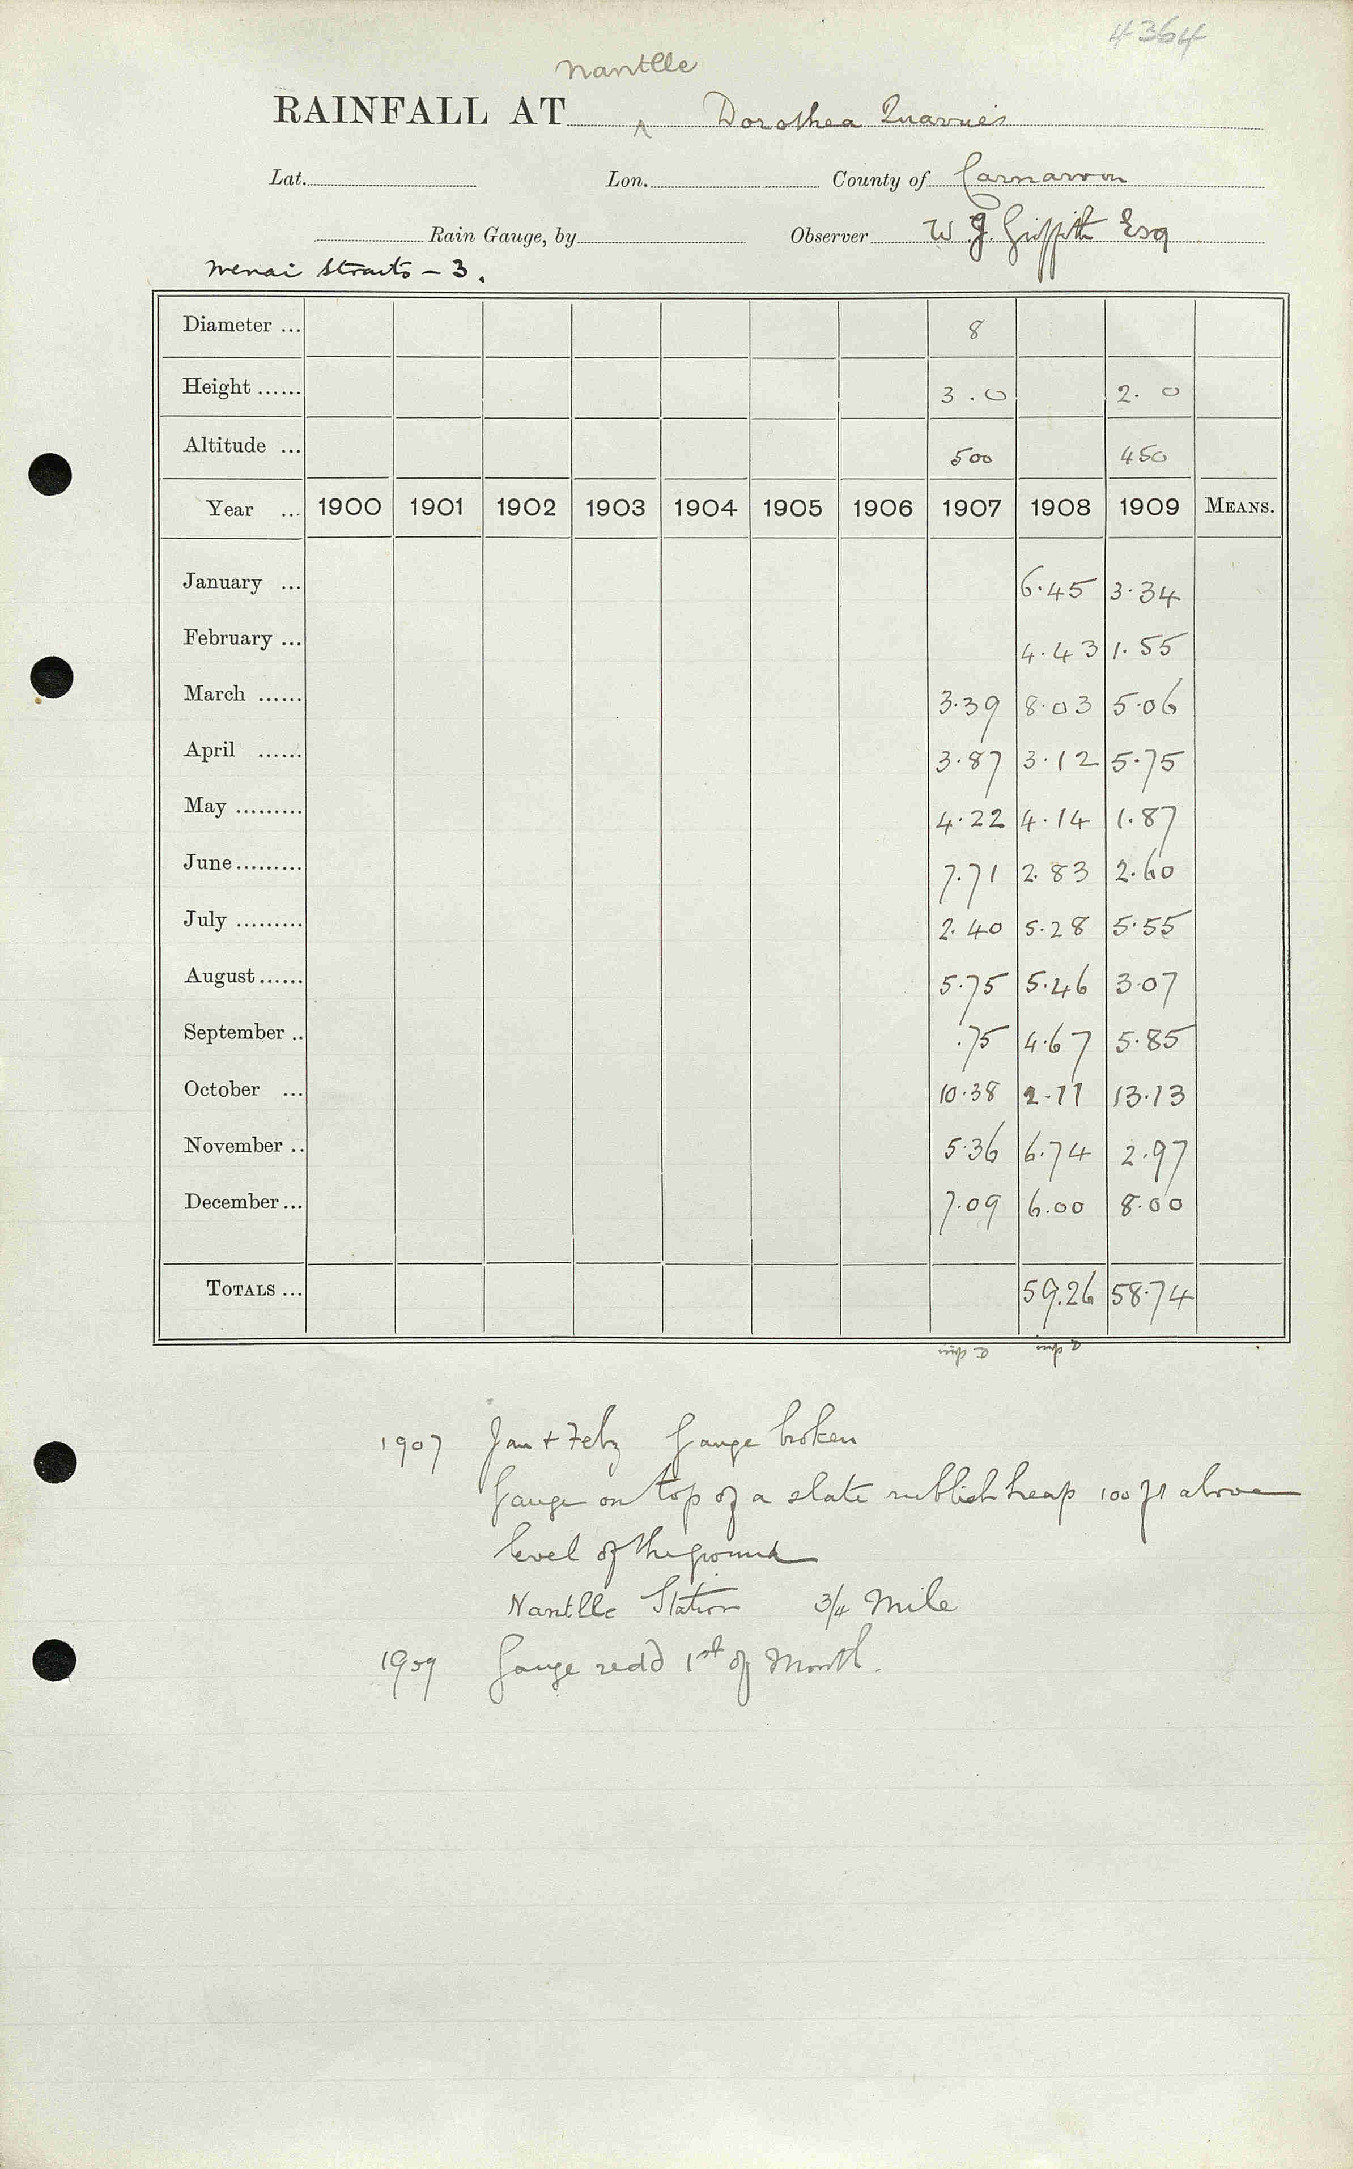 4364
Nantlle
RAINFALL AT ^ Dorothea Quarries
Lat. Lon. County of Carnarvon
Rain Gauge, by Observer W J. Griffith Esq
Menai Straits - 3.
Diameter ... 8
Height ...... 3.0 2.0
Altitude ... 500 450
Year ... 1900 1901 1902 1903 1904 1905 1906 1907 1908 1909 MEANS.
January ... 6.45 3.34
February ... 4.43 1.55
March ...... 3.39 8.03 5.06
April ...... 3.87 3.12 5.75
May ......... 4.22 4.14 1.87
June ......... 7.71 2.83 2.60
July ......... 2.40 5.28 5.55
August ...... 5.75 5.46 3.07
September .. .75 4.67 5.85
October ... 10.38 2.11 13.13
November .. 5.36 6.74 2.97
December ... 7.09 6.00 8.00
TOTALS ... 59.26 58.74
1907 Jan + Feby Gauge broken
Gauge on top of a slate rubbish heap 100 ft above
level of the ground
Nantlle Station 3/4 Mile
1909 Gauge redd 1st of Month.